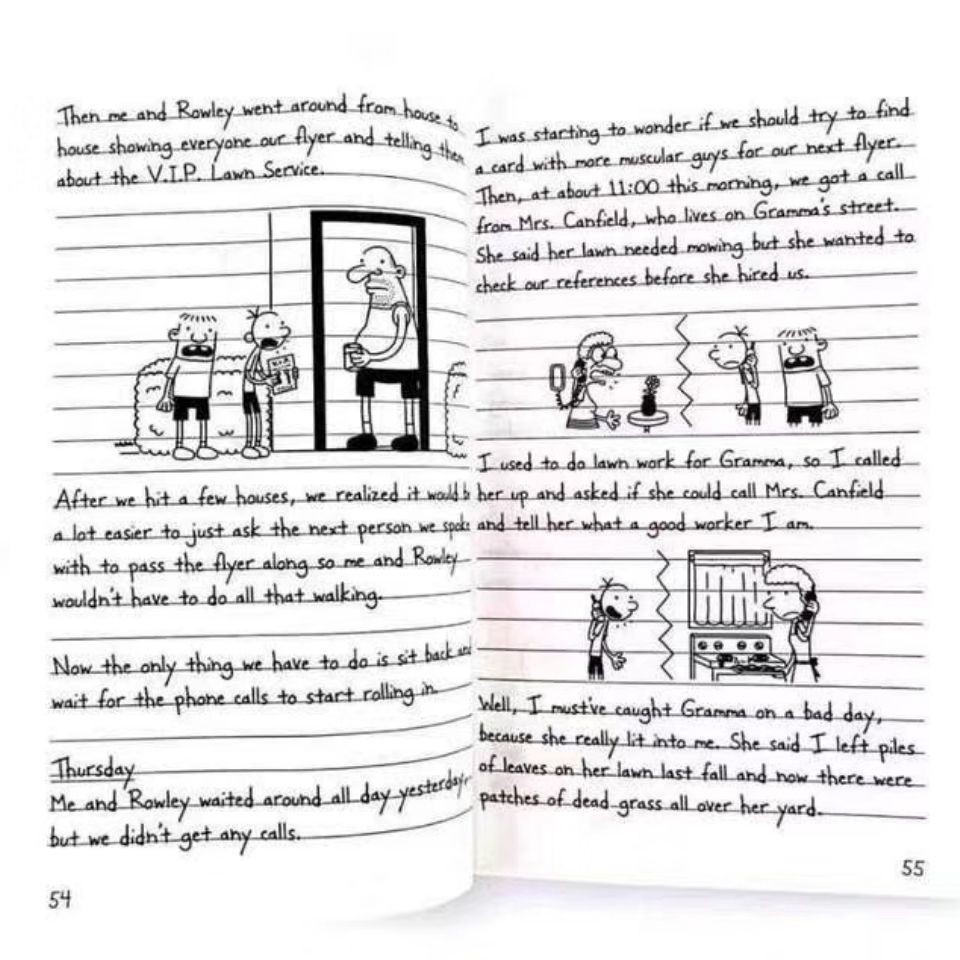 Then me and Rowley went around from house to
house showing everyone our flyer and telling them
about the V.I.P. Lawn Service.
After we hit a few houses, we realized it would b
a lot easier to just ask the next person we spoke
with to pass the flyer along so me and Rowley
wouldn't have to do all that walking.
Now the only thing we have to do is sit back and
wait for the phone calls to start rolling in.
Thursday
Me and Rowley waited around all day yesterday,
but we didn't get any calls.
54
I was starting to wonder if we should try to find
a card with more muscular guys for our next flyer.
Then, at about 11:00 this morning, we got a call
from Mrs. Canfield, who lives on Gramma's street.
She said her lawn needed mowing but she wanted to
check our references before she hired us.
I used to do lawn work for Gramma, so I called
her up and asked if she could call Mrs. Canfield
and tell her what a good worker I am.
Well, I must've caught Gramma on a bad day,
because she really lit into me. She said I left piles
of leaves on her lawn last fall and now there were
patches of dead grass all over her yard.
55